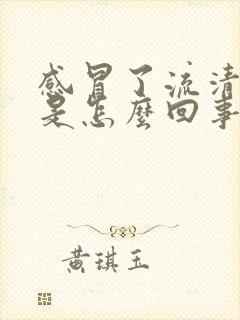 感冒了流清
是怎麼回事
黄琪玉